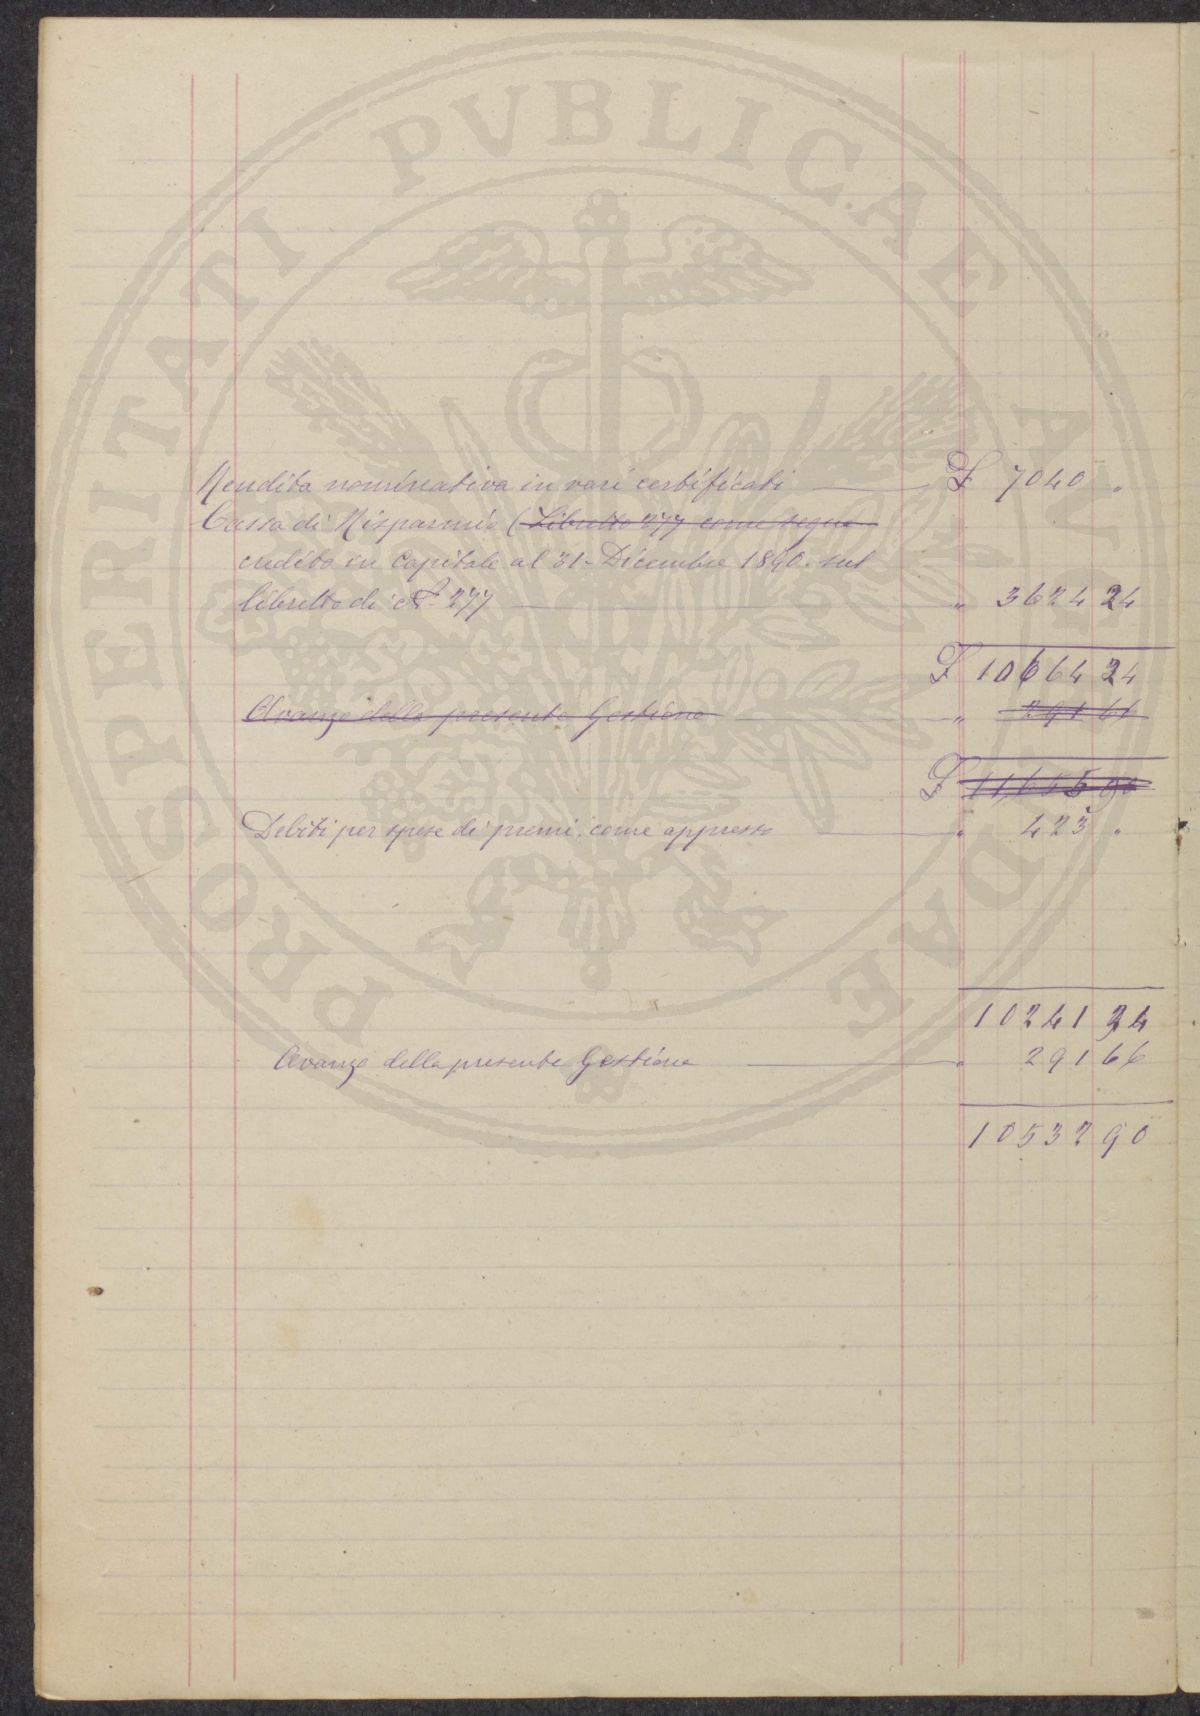 PROSPERITATI PVBLICAE AVGENDAE
Rendita nominativa in vari certificati £ 7040 "
Cassa di Risparmio (Libretto 277 come segue
credito in Capitale al 31 - Dicembre 1890. sul
libretto di N.º 277 " 3624 24
£ 10664 24
Avanzo della presente Gestione " 291 61
£
Debiti per spese di premi, come appresso " 423 "
10241 24
Avanzo della presente Gestione " 291 66
10532 90